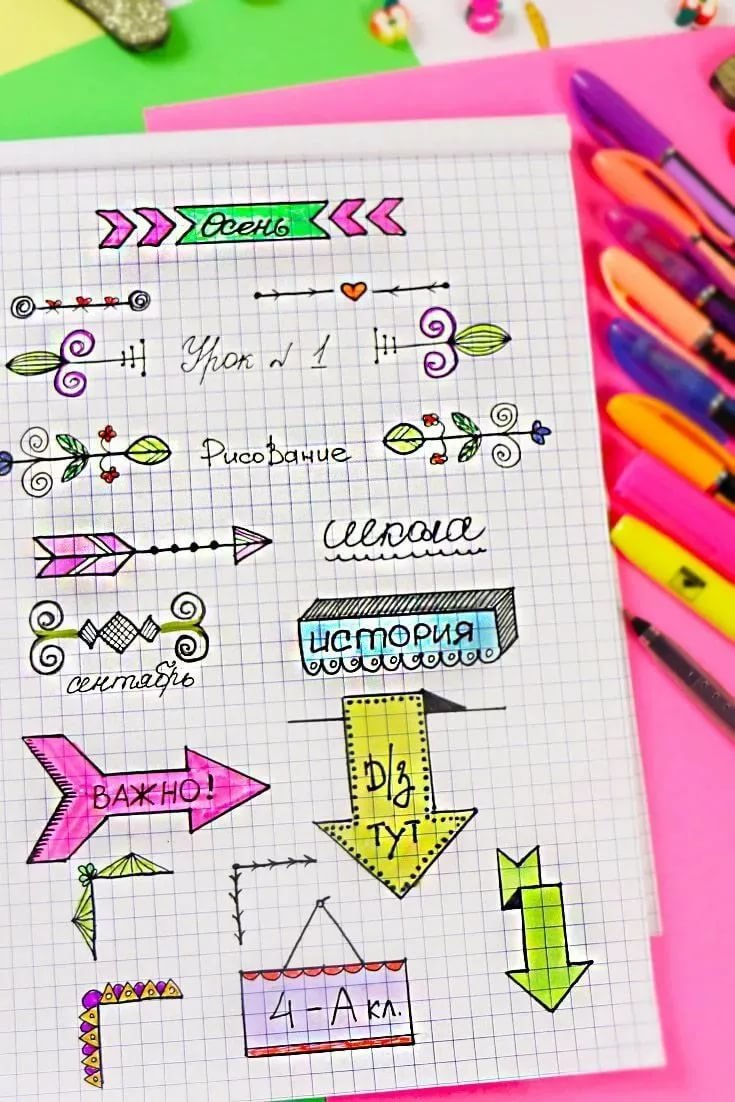 Осень
Урок № 1
Рисование
школа
сентябрь
ИСТОРИЯ
ВАЖНО!
Д/з
ТУТ
4-А кл.